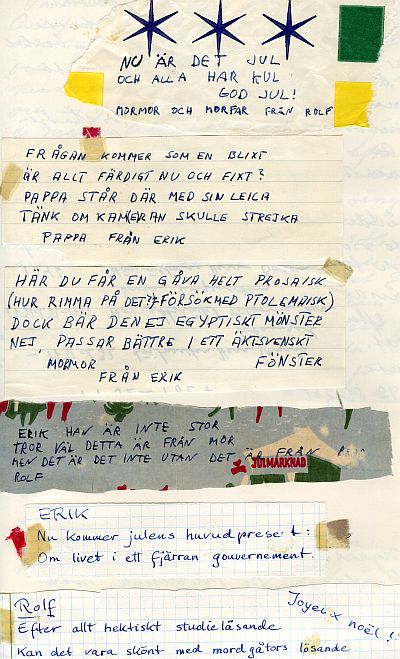 NU ÄR DET JUL
OCH ALLA HAR KUL
GOD JUL!
MORMOR OCH MORFAR FRÅN ROLF
FRÅGAN KOMMER SOM EN BLIXT
ÄR ALLT FÄRDIGT NU OCH FIXT?
PAPPA STÅR DÄR MED SIN LEICA
TÄNK OM KAMERAN SKULLE STREJKA
PAPPA FRÅN ERIK
HÄR DU FÅR EN GÅVA HELT PROSAISK
(HUR RIMMA PÅ DET? FÖRSÖK MED PTOLEMAISK)
DOCK BÄR DEN EJ EGYPTISKT MÖNSTER
NEJ, PASSAR BÄTTRE I ETT ÄKTSVENSKT
FÖNSTER
MORMOR
FRÅN ERIK
ERIK HAN ÄR INTE STOR
TROR VÄL DETTA ÄR FRÅN MOR
MEN DET ÄR DET INTE UTAN DET ÄR FRÅN
ROLF
JULMARKNAD
ERIK
Nu kommer julens huvudpresent:
Om livet i ett fjärran gouvernement.
Rolf
Joyeux noël!
Efter allt hektiskt studieläsande
Kan det vara skönt med mordgåtors läsande